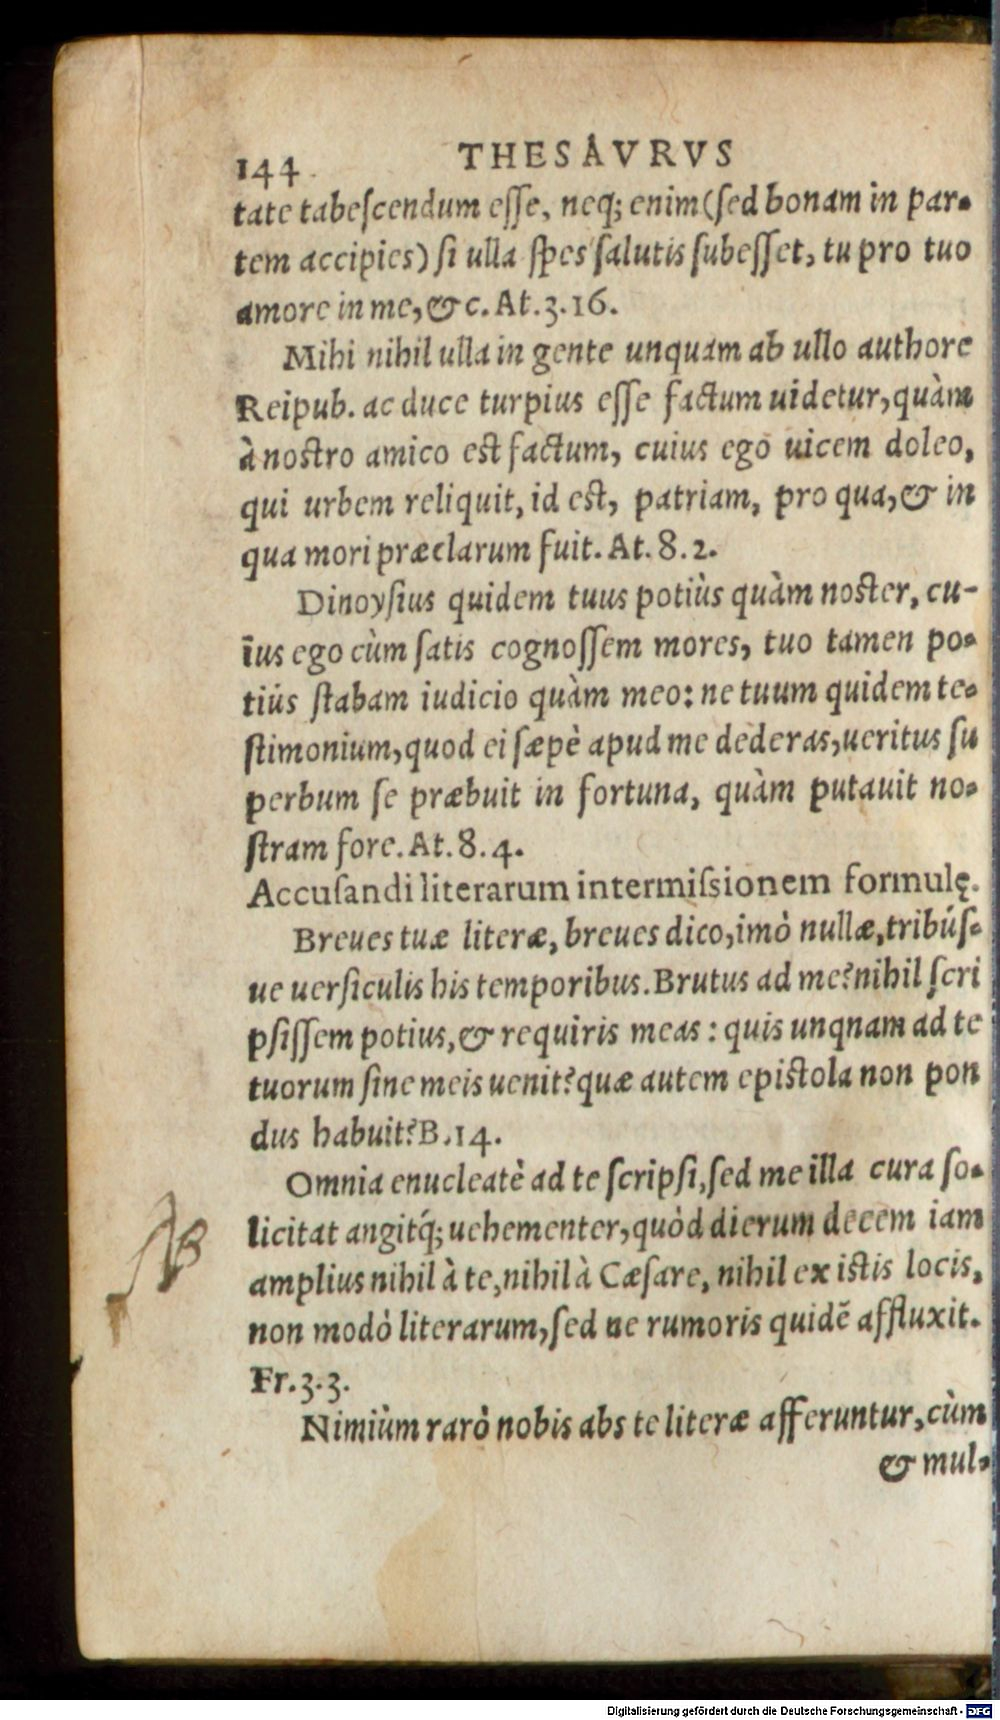 144 THESAVRVS
tate tabeſcendum eſſe, neq; enim (ſed bonam in par-
tem accipies) ſi ulla ſpes ſalutis ſubeſſet, tu pro tuo
amore in me, & c. At. 3. 16.
Mihi nihil ulla in gente unquam ab ullo authore
Reipub. ac duce turpius eſſe factum uidetur, quàm
à noſtro amico eſt factum, cuius ego uicem doleo,
qui urbem reliquit, id eſt, patriam, pro qua, & in
qua mori præclarum fuit. At. 8. 2.
Dinoyſius quidem tuus potiùs quàm noſter, cu-
ius ego cùm ſatis cognoſſem mores, tuo tamen po-
tiùs ſtabam iudicio quàm meo: ne tuum quidem te-
ſtimonium, quod ei ſæpè apud me dederas, ueritus ſu
perbum ſe præbuit in fortuna, quàm putauit no-
ſtram fore. At. 8. 4.
Accuſandi literarum intermiſsionem formulę.
Breues tuæ literæ, breues dico, imò nullæ, tribúſ-
ue uerſiculis his temporibus. Brutus ad me? nihil ſcri
pſiſſem potius, & requiris meas: quis unqnam ad te
tuorum ſine meis uenit? quæ autem epiſtola non pon
dus habuit? B. 14.
Omnia enucleatè ad te ſcripſi, ſed me illa cura ſo-
licitat angitq́; uehementer, quòd dierum decem iam
amplius nihil à te, nihil à Cæſare, nihil ex iſtis locis,
non modò literarum, ſed ne rumoris quidē affluxit.
Fr. 3. 3.
Nimiùm rarò nobis abs te literæ afferuntur, cùm
& mul-
NB
Digitalisierung gefördert durch die Deutsche Forschungsgemeinschaft - DFG